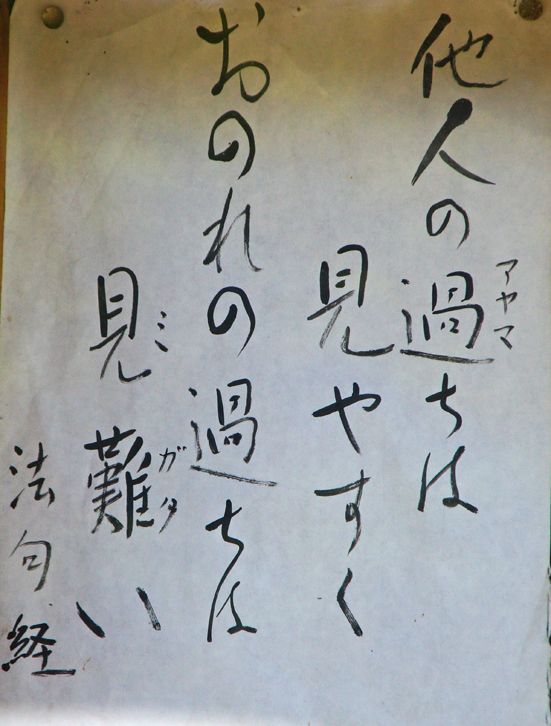 他人の過ちは
アヤマ
見やすく
おのれの過ちは
見難い
ミ
ガタ
法句経